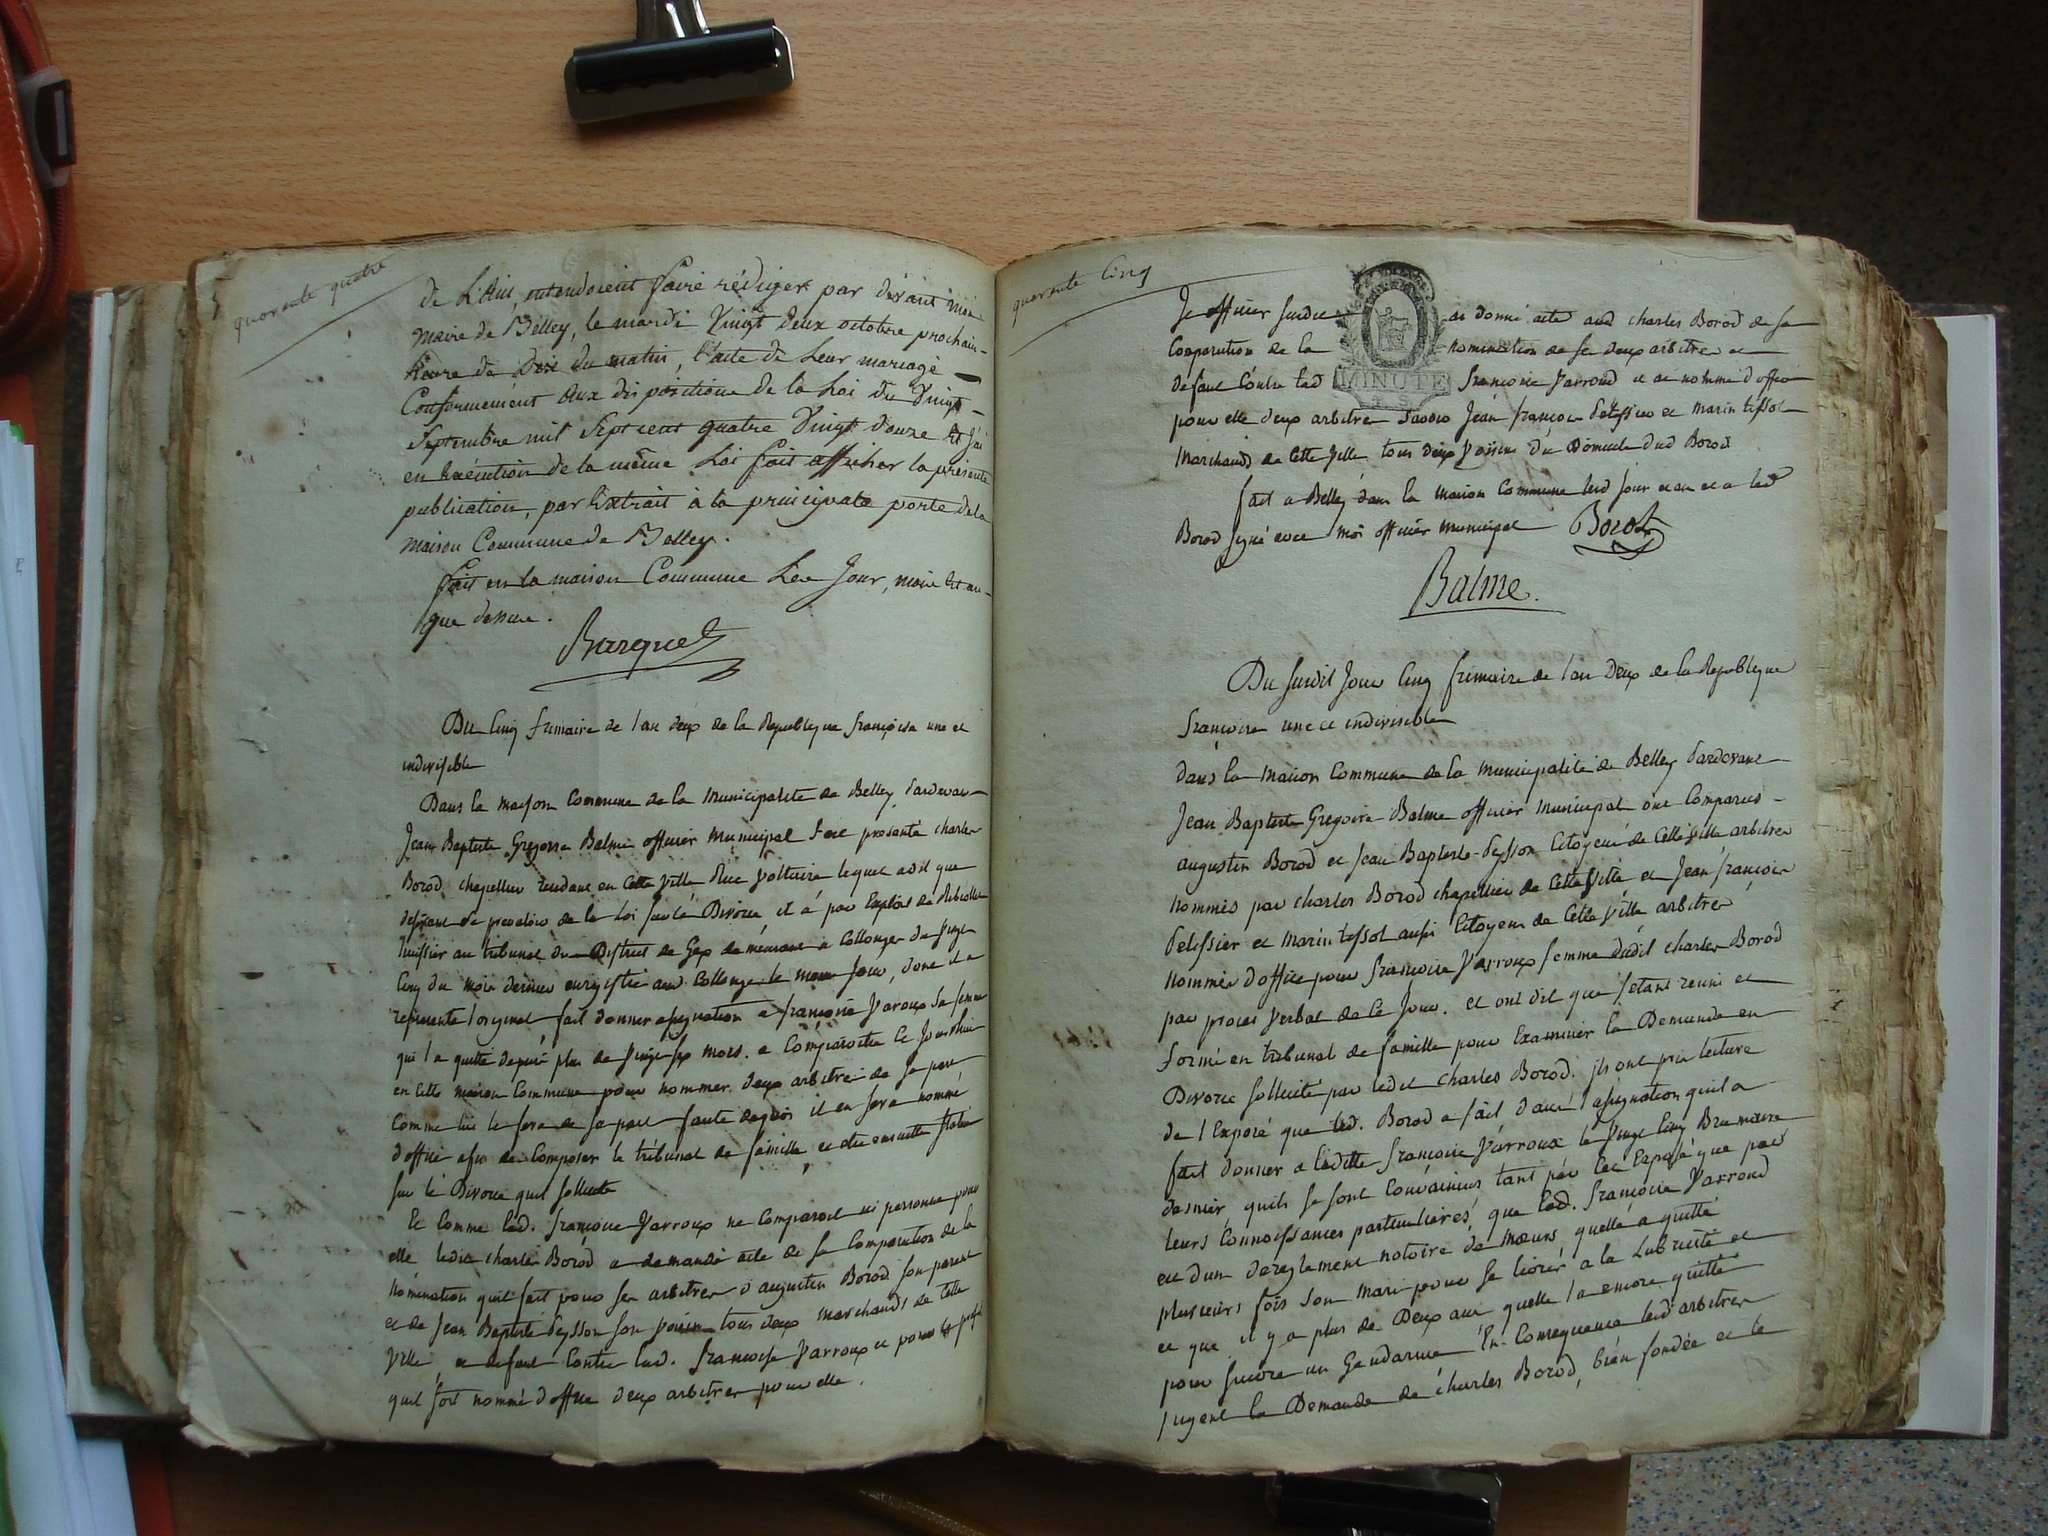 quarante quatre
de L'Ain, entendoient faire rédiger par devant moi
maire de Belley, le mardi Vingt deux octobre prochain
heure de Dix du matin, l'acte de Leur mariage
Conformément aux dispositions de la Loi du Vingt
Septembre mil Sept cent quatre Vingt douze Et J'ai
en Exécution de la même Loi fait afficher la présente
publication, par Extrait à la principale porte de la
maison Commune de Belley.
fait en la maison Commune Les Jour, mois Et an
que dessus.
Barquet
Du Cinq frimaire de l'an deux de la Republique françoise une et
indivisible
Dans la maison Commune de la Municipalité de Belley, pardevant
Jean Baptiste Gregoire Balme officier municipal s'est presenté charles
Borod, chapellier residant en Cette ville Rue Voltaire lequel a dit que
desirant se prevaloir de la Loi sur le Divorce il a par Exploit de
huissier au tribunal du District de Gex demeurant a Collonges du vingt
Cinq du mois dernier enregistré aud Collonges le meme jour, dont il a
representé l'original fait donner assignation a françoise Varoux sa femme
qui l'a quitté depuis plus de vingt six mois. a Comparoitre Ce jourdhui
en Cette maison Commune pour nommer deux arbitres de sa part
Comme lui le fera de sa part faute de quoi il en sera nommé
d'office afin de Composer le tribunal de famille, et etre ensuitte statué
sur le Divorce quil sollicite
Et Comme lad. françoise Varroux ne Comparoit ni personne pour
elle ledit charles Borod a demandé acte de sa Comparution de la
Nomination quil fait pour ses arbitres d'augustin Borod son parent
et de Jean Baptiste Peysson son voisin tous deux marchands de Cette
Ville, et defaut Contre lad. françoise Varroux et pour le profit
quil soit nommé d'office deux arbitres pour elle.
quarante Cinq
Je officier susdit ai donné acte aud charles Borod de sa
Cooparution de la nomination de se deux arbitres et
defaut Contre lad françoise Varroud et ai nommé d'office
pour elle deux arbitres Savoir Jean françois Pelissier et marin tissot
marchands de Cette ville tous deux voisins du Domicile dud Borod
MINUTE
fait a Belley dans la maison Commune lesd jour et an et a led
Borod signé avec moi officier municipal Borod
Balme.
Du susdit jour Cinq frimaire de l'an Deux de la Republique
françoise une et indivisible
dans la maison Commune de la municipalité de Belley Pardevant
Jean Baptiste Gregoire Balme officier municipal ont Comparus
augustin Borod et Jean Baptiste Peysson Citoyens de Cette ville arbitres
nommés par charles Borod chapellier de Cette ville et Jean françois
Pelissier et Marin tissot aussi Citoyens de Cette ville arbitres
nommés d'office pour françoise Varroux femme dudit charles Borod
par proces verbal de Ce jour. et ont dit que s'etant reuni et
formé en tribunal de famille pour Examiner la Demande en
Divorce sollicité par ledit charles Borod. ils ont pris lecture
de l'Exposé que led. Borod a fait dans l'assignation quil a
fait donner a ladite françoise Varroux le vingt Cinq Brumaire
dernier, quils se sont Convaincus tant par Cet Exposé que par
leurs Connoissances particulieres, que lad. françoise Varroud
est d'un dereglement notoire de mœurs quelle a quitté
plusieurs fois son mari pour se livrer a la Lubricité et
et que il y a plus de Deux ans quelle l'a encore quitté
pour suivre un Gendarme En Consequence lesd arbitres
jugent la Demande de charles Borod, bien fondée et le